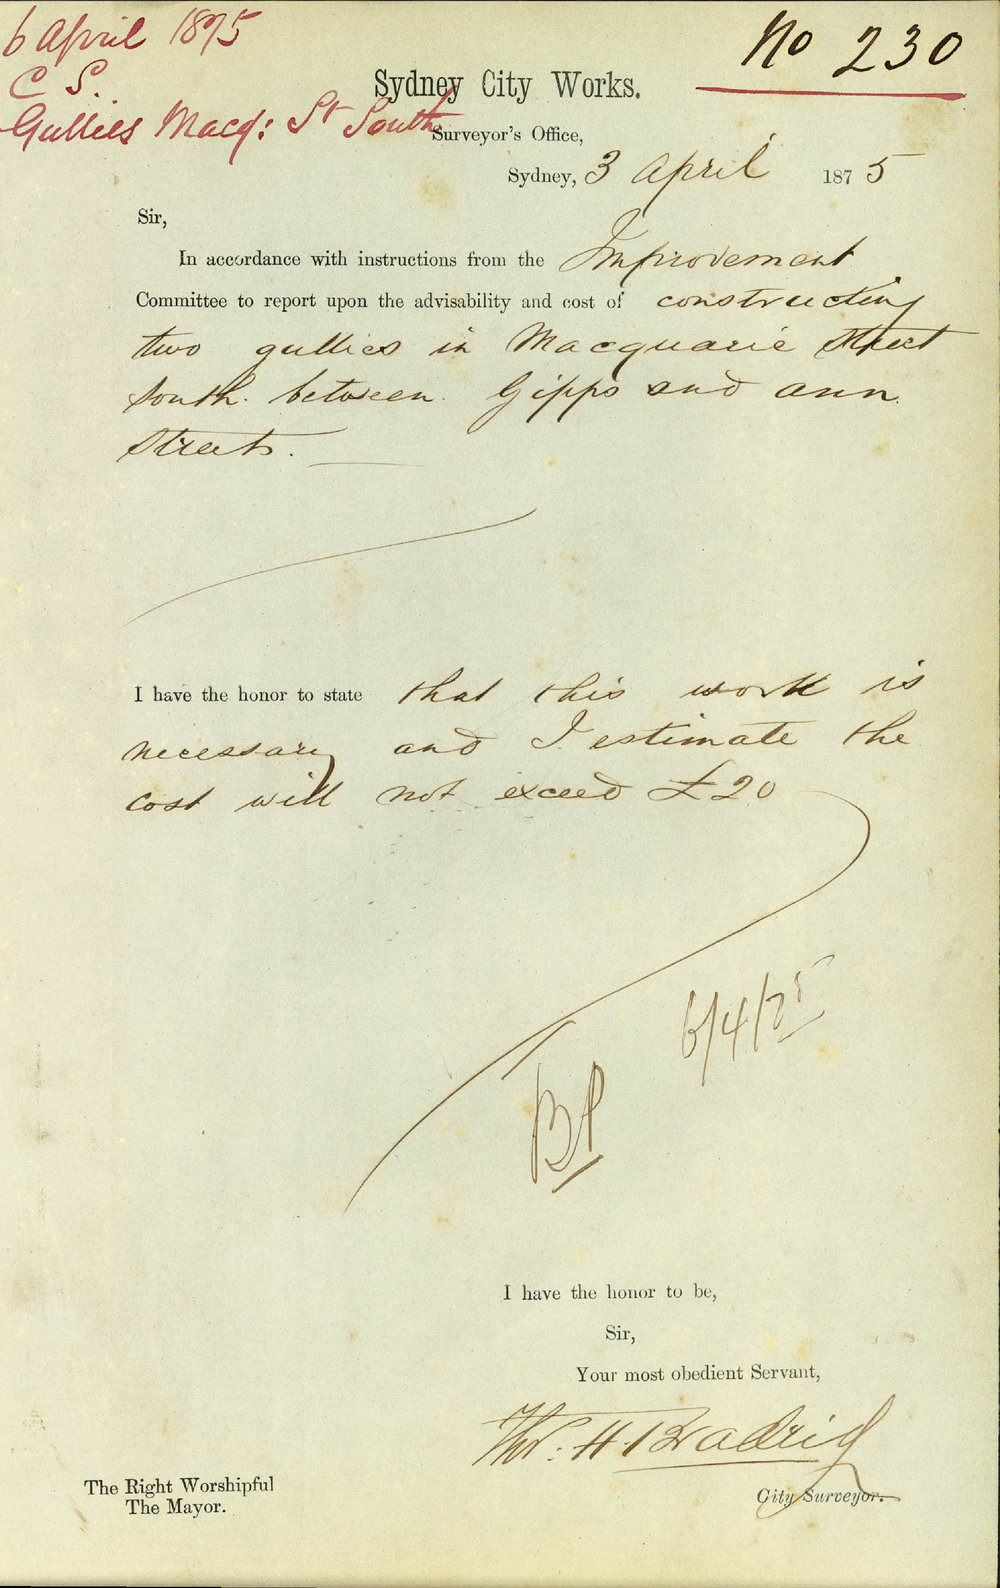 6 April 1875
C S.
Gullies Macq: St South
No 230
Sydney City Works.
Surveyor's Office,
Sydney, 3 April 1875
Sir,
In accordance with instructions from the Improvement
Committee to report upon the advisability and cost of constructing
two gullies in Macquarie Street
South. between Gipps and Ann.
Streets.
I have the honor to state that this work is
necessary and I estimate the
cost will not exceed £20
6/4/75
BP
I have the honor to be,
Sir,
Your most obedient Servant,
Thos. H. Bradrig
City Surveyor.
The Right Worshipful
The Mayor.